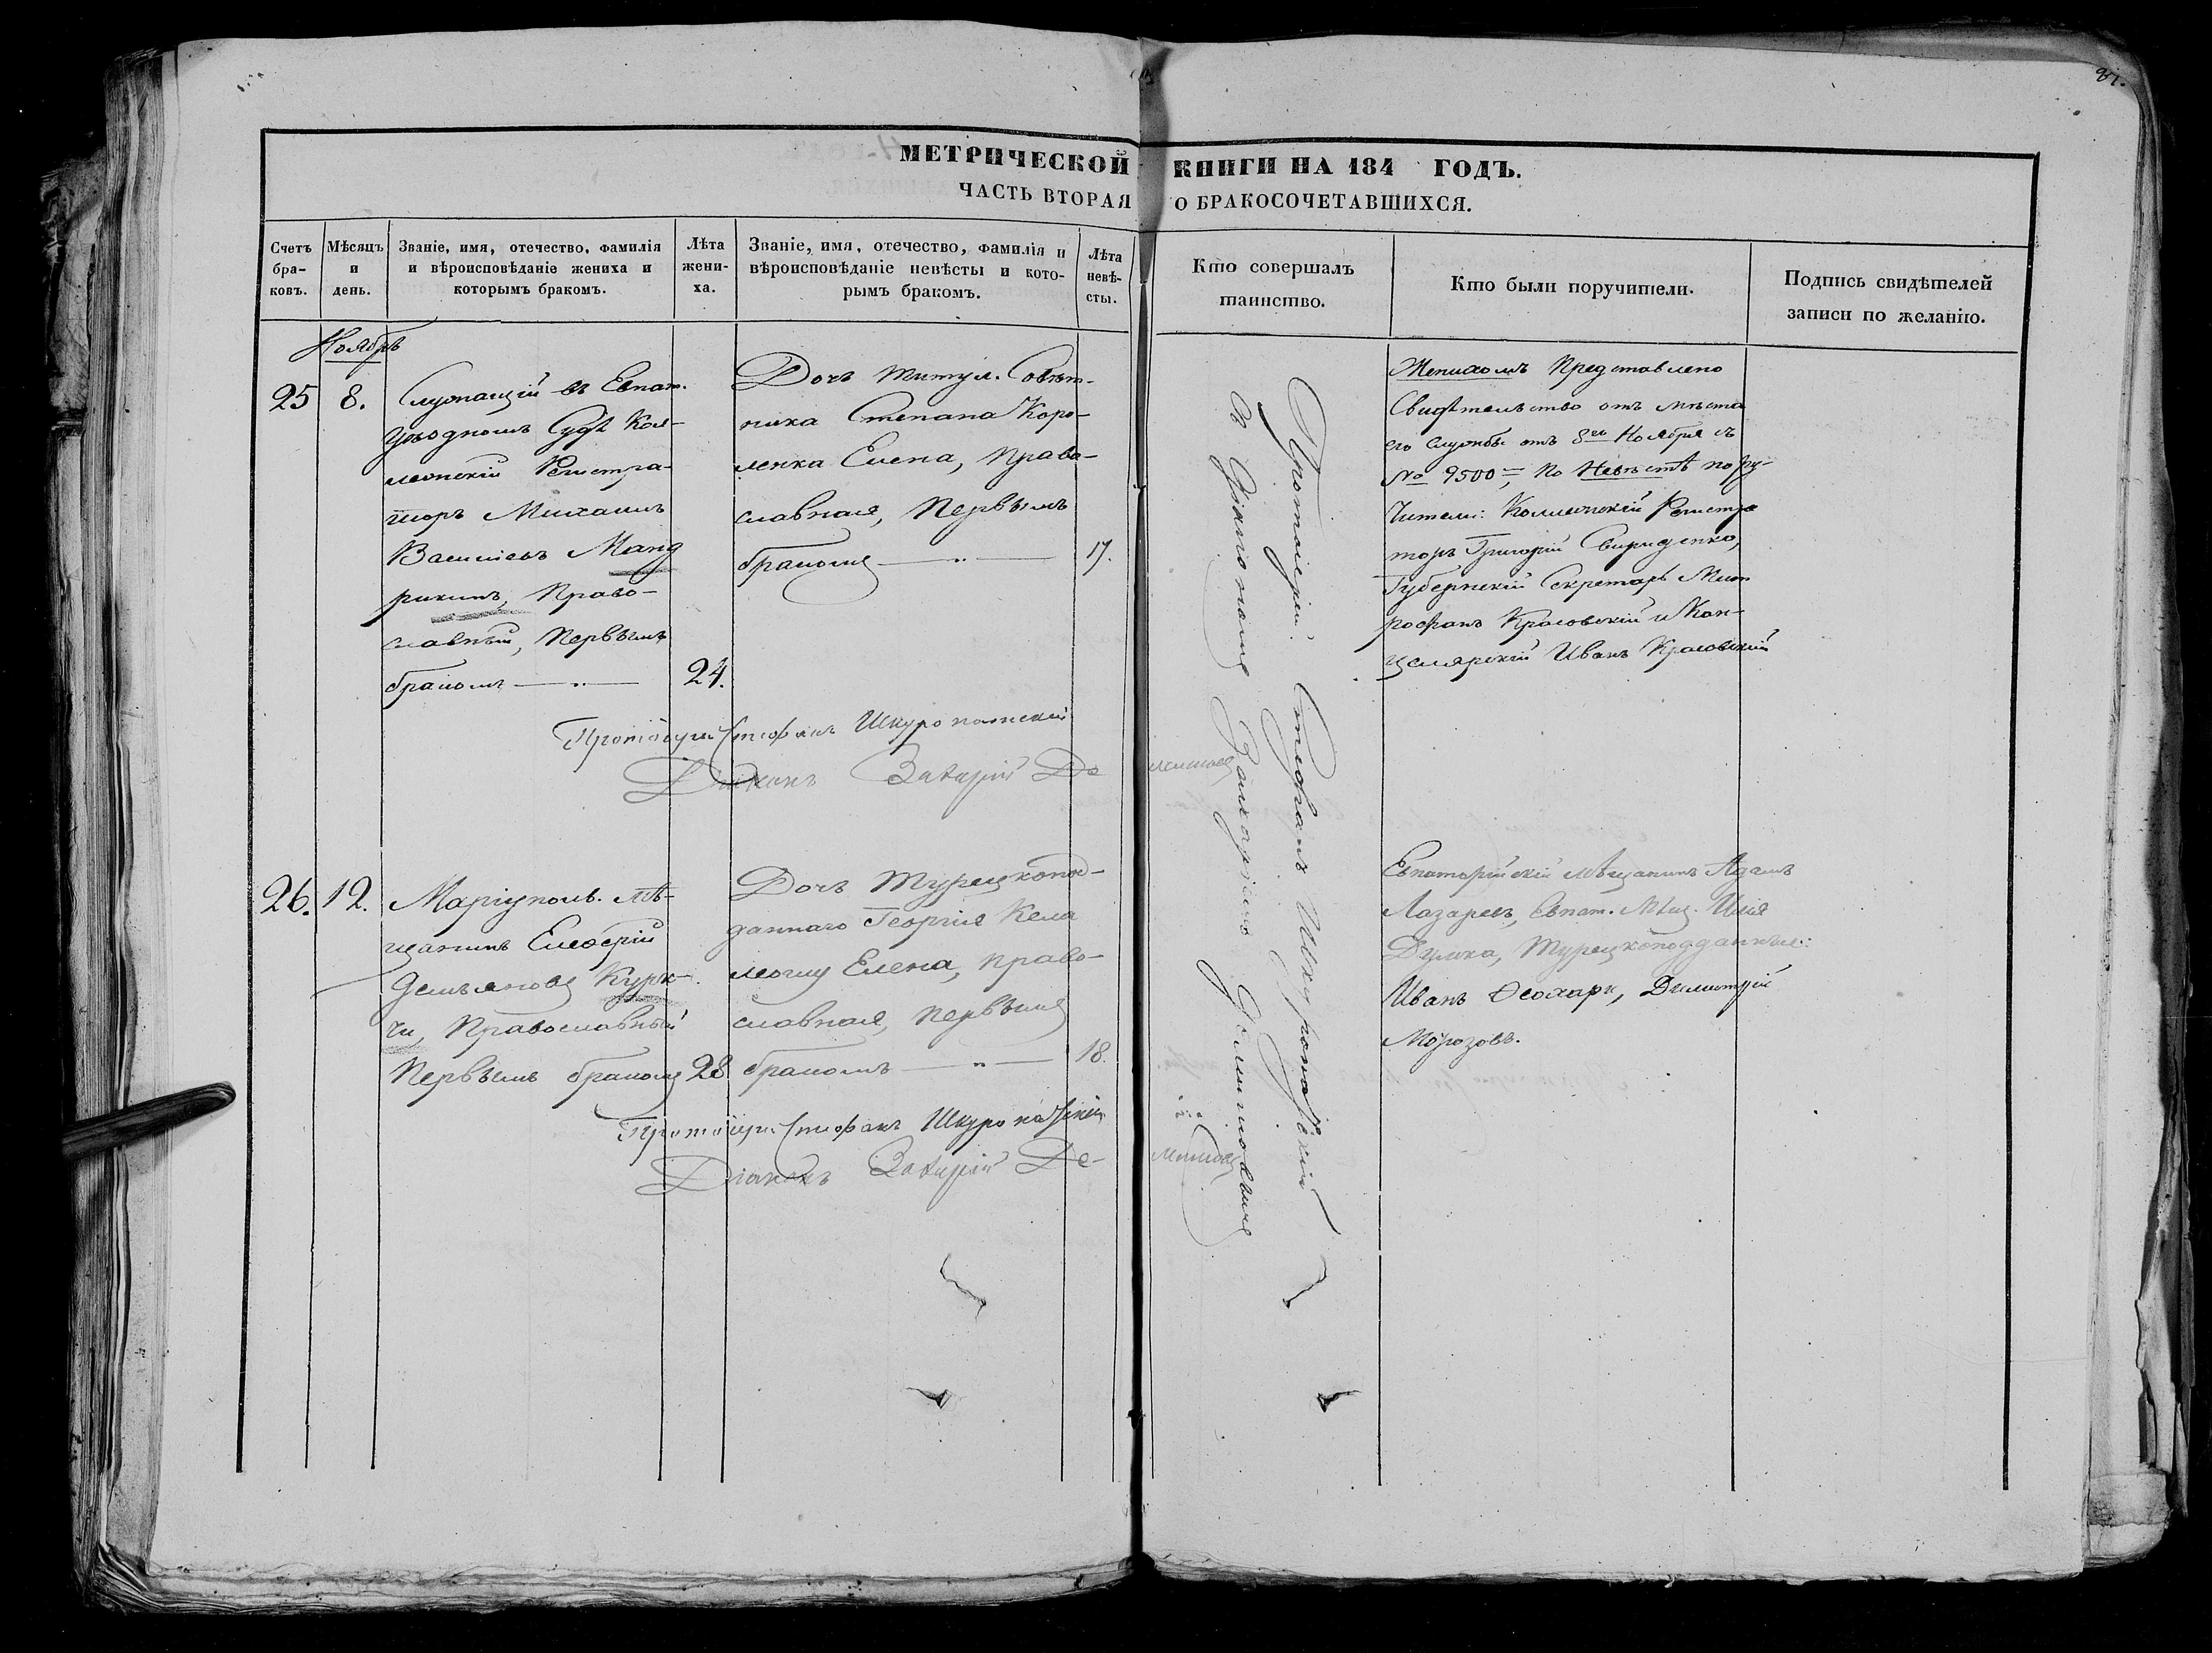 81.
МЕТРИЧЕСКОЙ КНИГИ НА 184 ГОДЪ.
ЧАСТЬ ВТОРАЯ О БРАКОСОЧЕТАВШИХСЯ.
Счетъ бра-ковъ.
Мѣсяцъ и день.
Званіе, имя, отечество, фамилія и вѣроисповѣданіе жениха и которымъ бракомъ.
Лѣта жени-ха.
Званіе, имя, отечество, фамилія и вѣроисповѣданіе невѣсты и кото-рымъ бракомъ.
Лѣта невѣ-сты.
Кто совершалъ таинство.
Кто были поручители.
Подпись свидѣтелей записи по желанію.
Ноябрь
25
8.
Служащій въ Евпат.
уѣздномъ Судѣ Кол-
лежскій Регистра-
торъ Михаилъ
Васильевъ Манд
рыкинъ, Право-
славный, первымъ
бракомъ
24.
Дочь Титул. Совѣт-
ника Степана Коро-
ленка Елена, Право-
славная, Первымъ
бракомъ
17.
Протоіерей Стефанъ Шкуропатскій
съ Діакономъ Захаріемъ
Женихомъ Представлено
Свидѣтельство отъ мѣста
его службы отъ 8го Ноября съ
№ 9500 По Невѣстѣ пору-
чители: Коллежскій Регистра
торъ Григорій Свириденко,
Губернскій Секретарь Мит
рофанъ Красовскій и Кан-
целярскій Иванъ Красовскій
Протоіерей Стефанъ Шкуропатскій
Діаконъ Захарій
26.
12.
Маріупол. мѣ-
щанинъ Елевферій
Демьяновъ Курк-
чи, Православный
Первымъ бракомъ
28
Дочь Турецкопод-
даннаго Георгія Кела
Елена, Право-
славная, первымъ
бракомъ
18.
Евпаторійскій мѣщанинъ Адамъ
Лазаревъ, Евпат. Мѣщ. Илія
Турецкоподданные:
Иванъ Ѳеохари, Димитрій
Морозовъ.
Протоіерей Стефанъ Шкуропатскій
Діаконъ Захарій